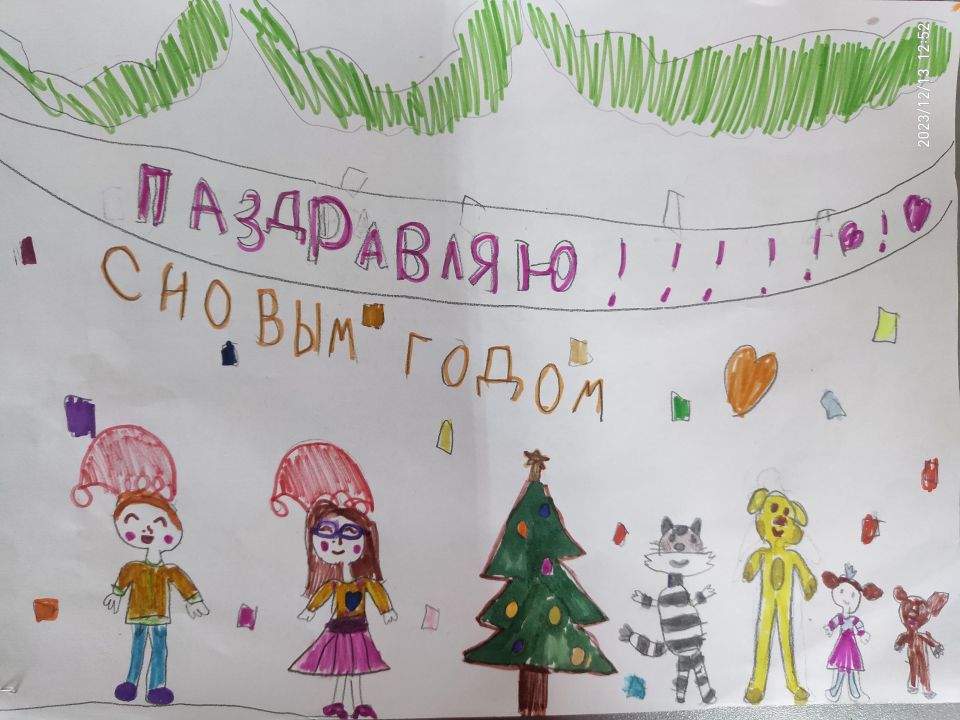 ПАЗДРАВЛЯЮ ! ! ! ! ! !
С НОВЫМ ГОДОМ
2023/12/13 12:52